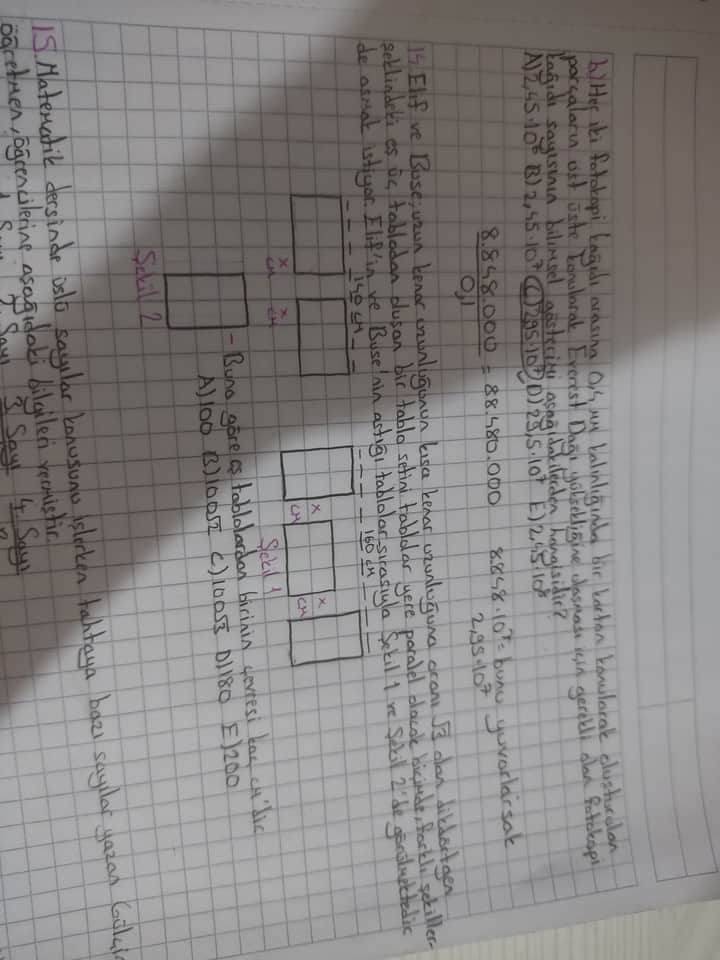 b) Her iki fotokopi kağıdı arasına 0,4 mm kalınlığında bir karton konularak oluşturulan
parçaların üst üste konularak Everest Dağı yüksekliğine ulaşması için gerekli olan fotokopi
kağıdı sayısının bilimsel gösterimi aşağıdakilerden hangisidir?
A) 2,45.10⁶ B) 2,45.10⁷ C) 2,95.10⁷ D) 29,5.10⁷ E) 2,45.10⁸
8.848.000 / 0,1 = 88.480.000
8.848.10⁷ = bunu yuvarlarsak
2,95.10⁷
14. Elif ve Buse; uzun kenar uzunluğunun kısa kenar uzunluğuna oranı √3 olan dikdörtgen
şeklindeki eş üç tablodan oluşan bir tablo setini tablolar yere paralel olacak biçimde, farklı şekiller-
de asmak istiyor. Elif'in ve Buse'nin astığı tablolar sırasıyla Şekil 1 ve Şekil 2'de görülmektedir
140 cm
160 cm
x
cm
x
cm
x
cm
x
cm
Şekil 1
Şekil 2
- Buna göre eş tablolardan birinin çevresi kaç cm'dir
A) 100 B) 100√2 C) 100√3 D) 180 E) 200
15. Matematik dersinde üslü sayılar konusunu işlerken tahtaya bazı sayılar yazan
öğretmen, öğrencilerine aşağıdaki bilgileri vermiştir.
3. Sayı 4. Sayı